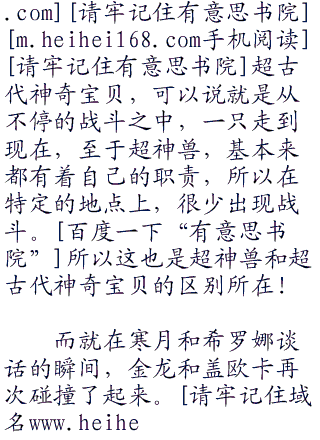 .com][请牢记住有意思书院]
[m.heihei168.com手机阅读]
[请牢记住有意思书院]超古
代神奇宝贝，可以说就是从
不停的战斗之中，一只走到
现在，至于超神兽，基本来
都有着自己的职责，所以在
特定的地点上，很少出现战
斗。[百度一下“有意思书
院”]所以这也是超神兽和超
古代神奇宝贝的区别所在！
而就在寒月和希罗娜谈
话的瞬间，金龙和盖欧卡再
次碰撞了起来。[请牢记住域
名www.heihe